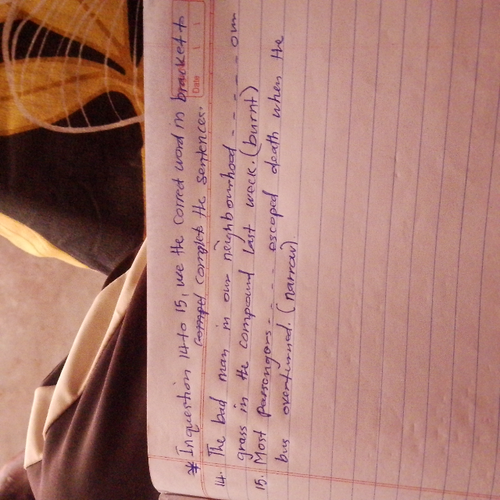 Date
* In question 14 to 15, use the correct word in bracket to
compel complete the sentences.
14. The bad man in our neighbourhood ----- our
grass in the compound last week. (burnt)
15. Most passengers ---- escaped death when the
bus overturned. (narrow)